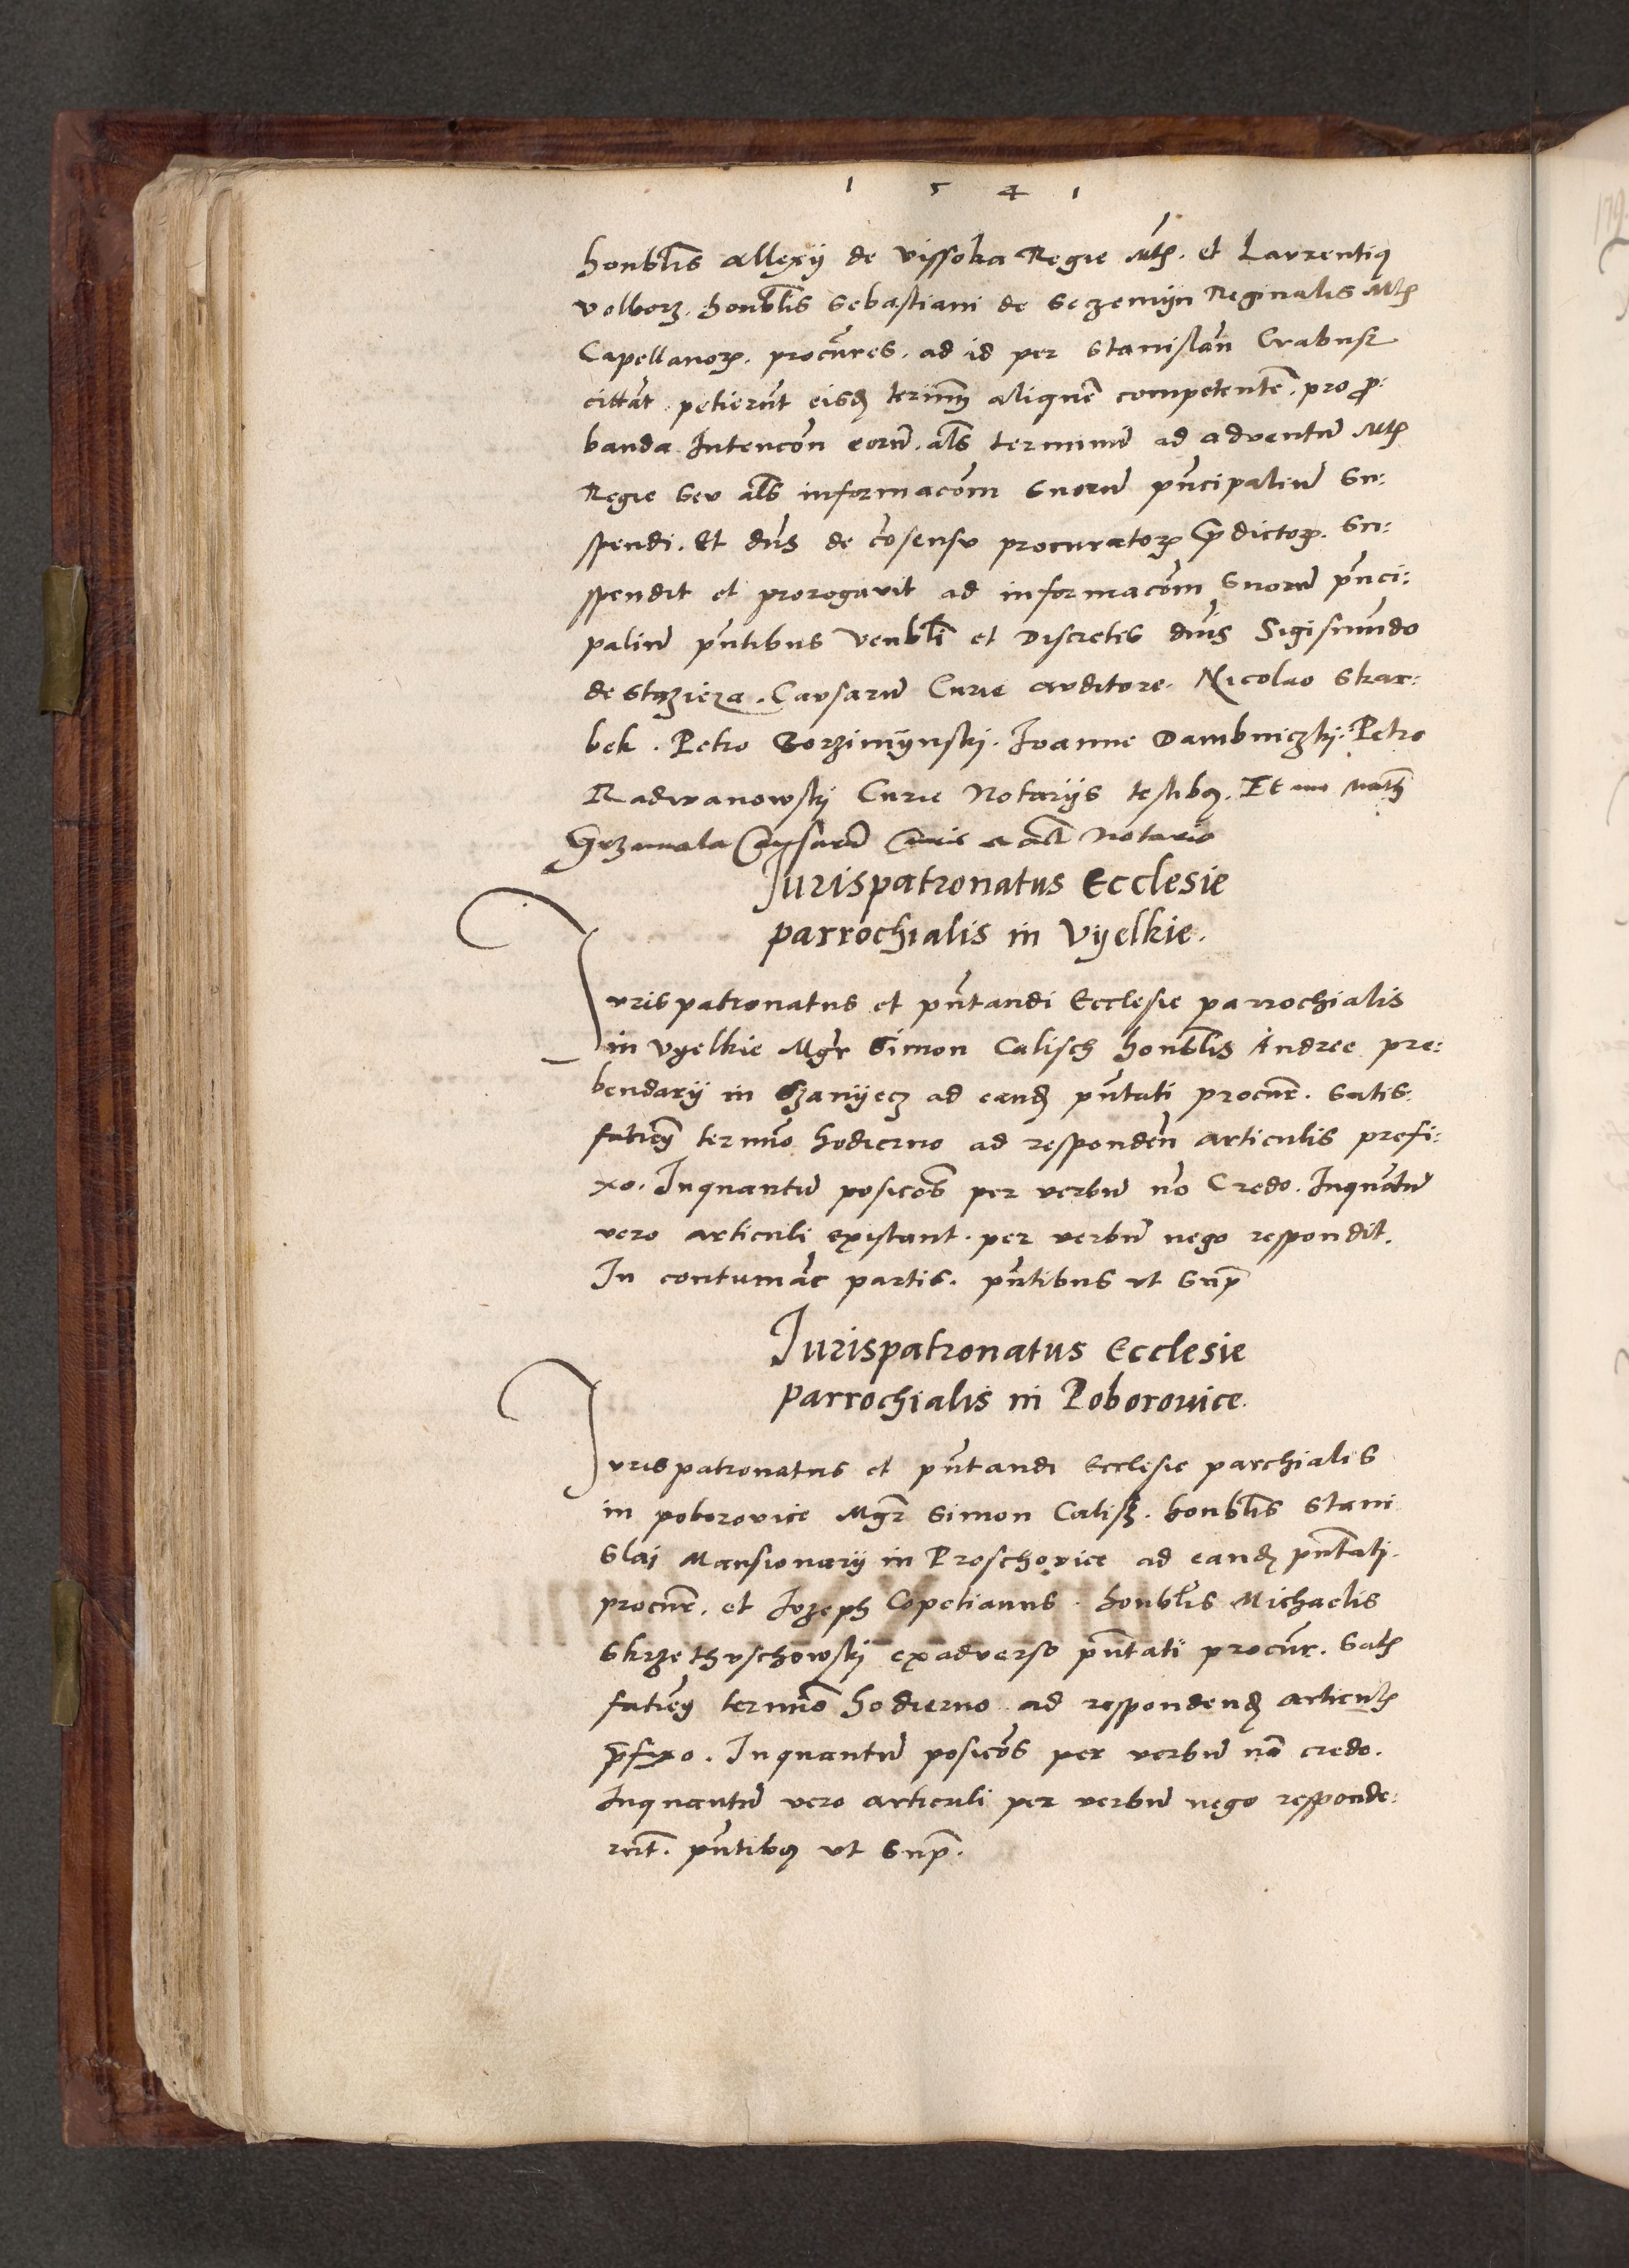 1 5 4 1
honblis Allexij de Vissoka Regie Mtis. et Laurentiq
volborz. honblis Sebastiani de Seczemijn Reginalis Mtis
Capellanorz. procures. ad id per Stanislaū
cittāt. petierūt eisdz termīnū aliquē competentē. pro pro:
banda Intencōn eorū. als terminū ad adventū Mtis
Regie seu als informacōm suorū pñcipaliū su:
spendi. Et dñs de cōsensu procuratorz predictorz. su:
spendit et prorogavit ad informacōm suorū pñci:
paliū pñtibus Venbli et Discretis dñis Sigismūdo
de Stezicza. Causarū Curie auditore. Nicolao Skar:
bek. Petro Gorzimijnski. Joanne Dambniczki. Petro
Radwanowski Curie Notarijs testibq. Et me Math
Grzimala Causarū Curie act Notario
Jurispatronatus Ecclesie
parrochialis in Vyelkie.
Jurispatronatus et pñtandi Ecclesie parrochialis
in Vyelkie Mgr Simon Calisch honblis Andree pre:
bendarij in Czanijecz ad eandz pñtati procur. satis:
faciens termīo hodierno ad respondeñ articulis prefi:
xo. Inquantū posicōs per verbū nō Credo. Inquātū
vero articuli existant. per verbū nego respondit.
In contumāc partis. pñtibus ut supr
Jurispatronatus Ecclesie
parrochialis in Poborovice.
Jurispatronatus et pñtandi Ecclesie parchialis
in poborovice Mgr Simon Calisz. honblis Stani
slai Mansionarij in Proschovice ad eandz pñtati.
procur. et Jozeph Copetianus. honblis Michaelis
Skrzethuschowski exadverso pñtati procur. Satis
faciens termīno hodierno ad respondendz articulis
prefixo. Inquantū posicōs per verbū nō credo.
Inquantū vero articuli per verbū nego responde:
runt. pñtibq ut supr.